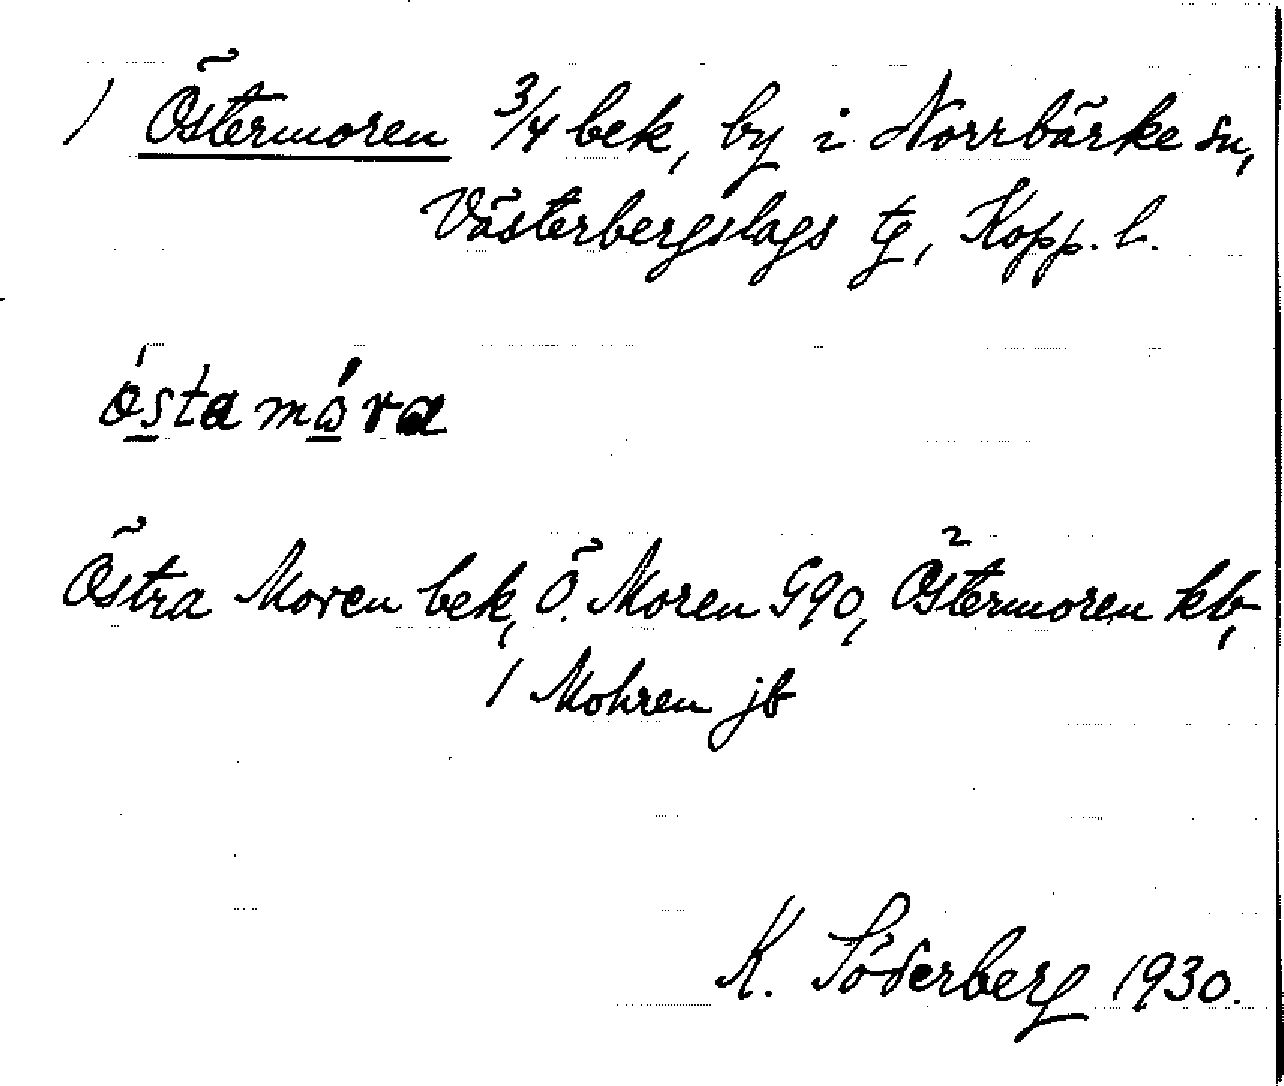 1 Östermoren 3/4 bek, by i Norrbärke sn,
Västerbergslags tg, Kopp. l.
ǿstamǿra
Östra Moren bek, Ö. Moren G90, Östermoren kb,
1 Mohren jb
K. Söderberg 1930.